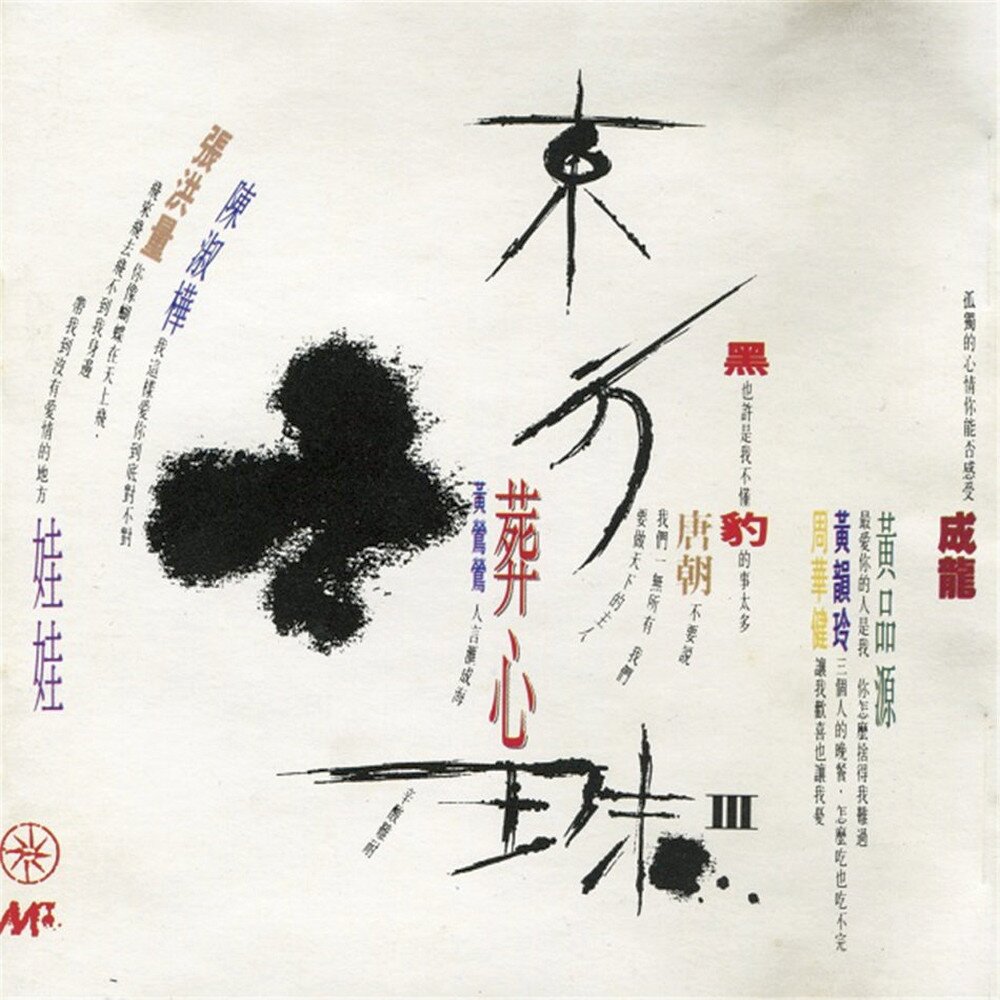 東方一珠
III
成龍
孤獨的心情你能否感受
黃品源
最愛你的人是我 你怎麼捨得我難過
黃韻玲
三個人的晚餐,怎麼吃也吃不完
周華健
讓我歡喜也讓我憂
黑豹
也許是我不懂
的事太多
唐朝
不要說
我們一無所有 我們
要做天下的主人
葬心
黃鶯鶯
人言匯成海
辛酸難耐
陳淑樺
我這樣愛你到底對不對
張洪量
你像蝴蝶在天上飛,
飛來飛去飛不到我身邊
帶我到沒有愛情的地方
娃娃